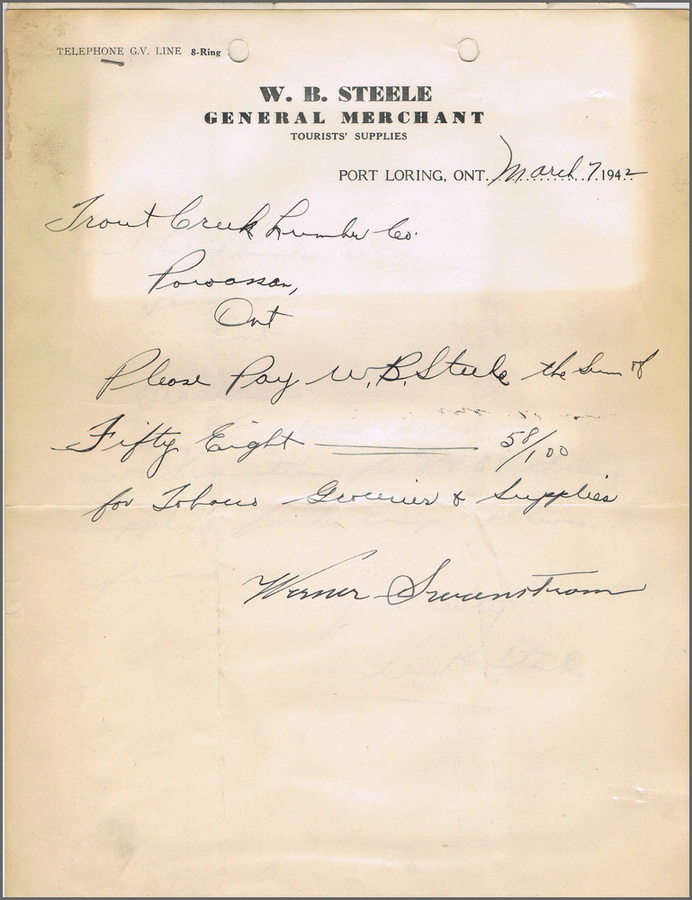 TELEPHONE G.V. LINE 8-Ring
W. B. STEELE
GENERAL MERCHANT
TOURISTS' SUPPLIES
PORT LORING, ONT. March 7 1942
Trout Creek Lumber Co.
Powassan,
Ont
Please Pay W.B. Steele the Sum of
Fifty Eight 58/100
for Tobacco Groceries & Supplies
Werner Swanstrom
W. B. Steele